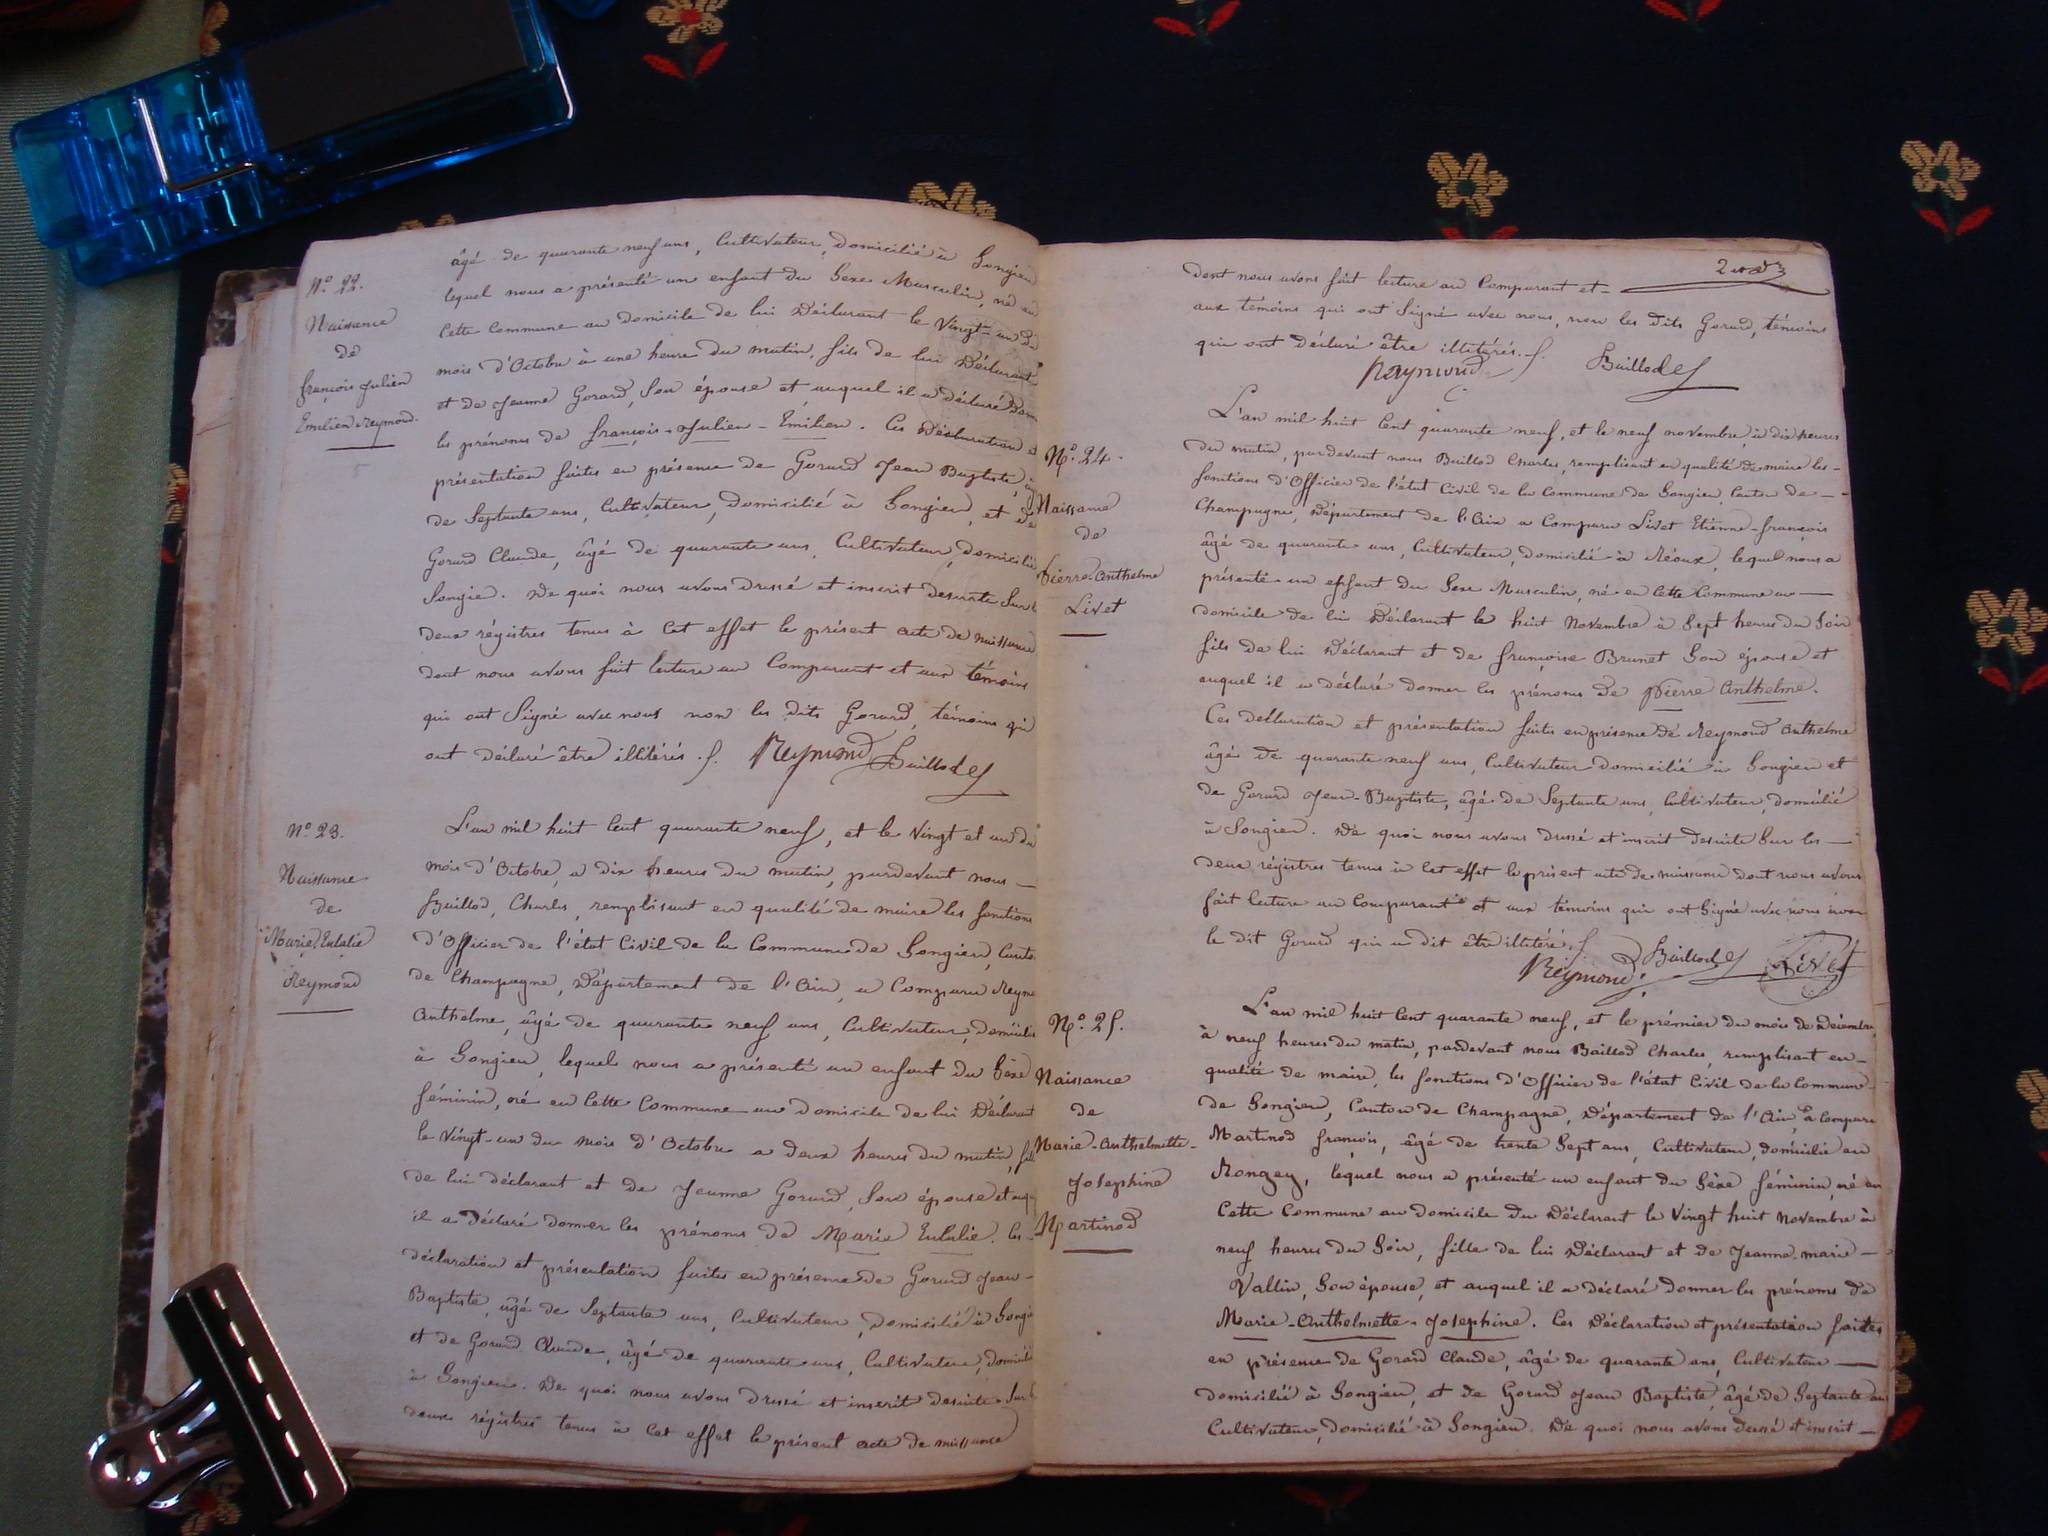 N.° 22.
Naissance
de
françois Julien
Emilien Reymond.
âgé de quarante neuf ans, Cultivateur, domicilié à Songieu
lequel nous a présenté un enfant du Sexe Masculin, né en
Cette Commune au domicile de lui Déclarant le Vingt-un du
mois d'Octobre à une heure du matin, fils de lui Déclarant
et de Jeanne Gorard, Son épouse et auquel il a déclaré Donn
les prénoms de françois-Julien-Emilien. Ces Déclaration et
présentation faites en présence de Gorard Jean Baptiste, âg
de Septante ans, Cultivateur, Domicilié à Songieu, et de
Gorard Claude, âgé de quarante ans, Cultivateur, domicilié
Songieu. De quoi nous avons dressé et inscrit desuite Sur l
deux régistres tenus à Cet effet le présent acte de naissance
dont nous avons fait lecture au Comparant et aux témoins
qui ont Signé avec nous non les dits Gorard, témoins qui
ont déclaré être illitérés.
Reymond Baillod
N.° 23.
Naissance
de
Marie Eulalie
Reymond
L'an mil huit Cent quarante neuf, et le Vingt et un du
mois d'Octobre, a dix heures du matin, pardevant nous
Baillod, Charles, remplisant en qualité de maire les fonctions
d'Officier de l'état Civil de la Commune de Songieu, Canto
de Champagne, Département de l'Ain, a Comparu Reymo
Anthelme, âgé de quarante neuf ans, Cultivateur, domicilié
à Songieu, lequel nous a présenté un enfant du Séxe
féminin, né en Cette Commune au domicile de lui Déclarant
le Vingt-un du mois d'Octobre a deux heures du matin, fill
de lui déclarant et de Jeanne Gorard, Son épouse et auqu
il a déclaré donner les prénoms de Marie Eulalie. Ces
déclaration et présentation faites en présence de Gorard Jean-
Baptiste, âgé de Septante ans, Cultivateur, Domicilié à Songie
et de Gorard Claude, âgé de quarante ans, Cultivateur, domicilié
à Songieu. De quoi nous avons dressé et inscrit desuite Sur l
deux régistres tenus à Cet effet le présent acte de naissance
dont nous avons fait lecture au Comparant et
aux témoins qui ont Signé avec nous, non les dits Gorard, témoins
qui ont déclaré être illitérés.
Raymond Baillod
N.° 24.
Naissance
de
Pierre-Anthelme
Livet
L'an mil huit Cent quarante neuf, et le neuf novembre, à dix heures
du matin, pardevant nous Baillod Charles, remplisant en qualité de maire les
fonctions d'Officier de l'état Civil de la Commune de Songieu Canton de
Champagne, Département de l'Ain a Comparu Livet Etienne-françois
âgé de quarante ans, Cultivateur, domicilié à Réoux, lequel nous a
présenté un enfant du Sexe Masculin, né en Cette Commune au
domicile de lui Déclarant le huit Novembre à Sept heures du Soir
fils de lui Déclarant et de françoise Brunet Son épouse et
auquel il a déclaré donner les prénoms de Pierre Anthelme.
Ces déclaration et présentation faites en présence de Reymond Anthelme
âgé de quarante neuf ans, Cultivateur domicilié à Songieu et
de Gorard Jean-Baptiste, âgé de Septante ans, Cultivateur, domicilié
à Songieu. De quoi nous avons dressé et inscrit desuite Sur les
deux régistres tenus à Cet effet le présent acte de naissance dont nous avons
fait lecture au Comparant et aux témoins qui ont Signé avec nous non
le dit Gorard qui a dit être illitéré.
Reymond Baillod Livet
N.° 25.
Naissance
de
Marie-Anthelmette-
Josephine
Martinod
L'an mil huit Cent quarante neuf, et le prémier du mois de Décembre,
à neuf heures du matin, pardevant nous Baillod Charles, remplisant en
qualité de maire, les fonctions d'Officier de l'état Civil de la Commune
de Songieu, Canton de Champagne, Département de l'Ain, a Comparu
Martinod françois, âgé de trente Sept ans, Cultivateur, domicilié au
Rongey, lequel nous a présenté un enfant du Séxe féminin, né en
Cette Commune au domicile du Déclarant le Vingt huit Novembre à
neuf heures du Soir, fille de lui Déclarant et de Jeanne-marie
Vallin, Son épouse, et auquel il a déclaré donner les prénoms de
Marie-Anthelmette-Josephine. Ces Déclaration et présentation faites
en présence de Gorard Claude, âgé de quarante ans, Cultivateur
domicilié à Songieu, et de Gorard Jean Baptiste, âgé de Septante ans
Cultivateur, Domicilié à Songieu. De quoi nous avons dressé et inscrit